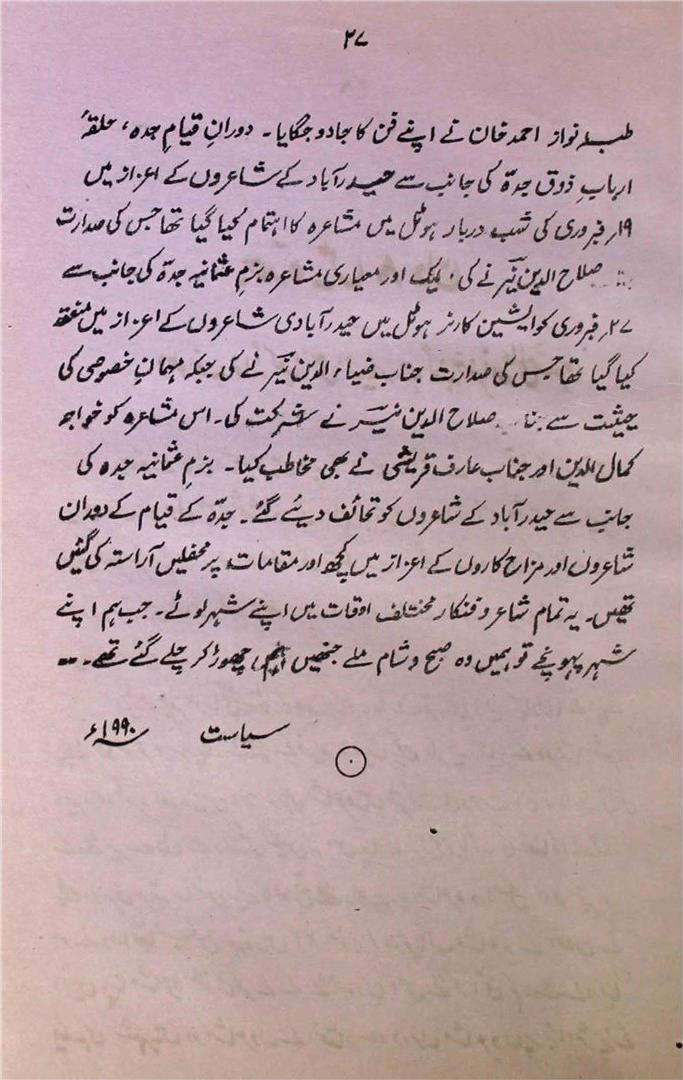 ۲۷
طبلہ نواز احمد خان نے اپنے فن کا جادو جگایا۔ دورانِ قیامِ جدہ، حلقۂ
اربابِ ذوق جدّہ کی جانب سے حیدرآباد کے شاعروں کے اعزاز میں
۱۹؍فبروری کی شب دربار ہوٹل میں مشاعرہ کا اہتمام کیا گیا تھا جس کی صدارت
صلاح الدین نیّر نے کی۔ ایک اور معیاری مشاعرہ بزمِ عثمانیہ جدّہ کی جانب سے
۲۷؍فبروری کو ایشین کارنر ہوٹل میں حیدرآبادی شاعروں کے اعزاز میں منعقد
کیا گیا تھا جس کی صدارت جناب ضیاء الدین نیّر نے کی جبکہ مہمانِ خصوصی کی
حیثیت سے جناب صلاح الدین نیّر نے شرکت کی۔ اس مشاعرہ کو خواجہ
کمال الدین اور جناب عارف قریشی نے بھی مخاطب کیا۔ بزمِ عثمانیہ جدہ کی
جانب سے حیدرآباد کے شاعروں کو تحائف دیئے گئے۔ جدّہ کے قیام کے دوران
شاعروں اور مزاح کاروں کے اعزاز میں کچھ اور مقامات پر محفلیں آراستہ کی گئیں
تھیں۔ یہ تمام شاعر و فنکار مختلف اوقات میں اپنے شہر لوٹے۔ جب ہم اپنے
شہر پہونچے تو ہمیں وہ صبح و شام ملے جنھیں ہم چھوڑ کر چلے گئے تھے۔
سیاست ۱۹۹۰ء